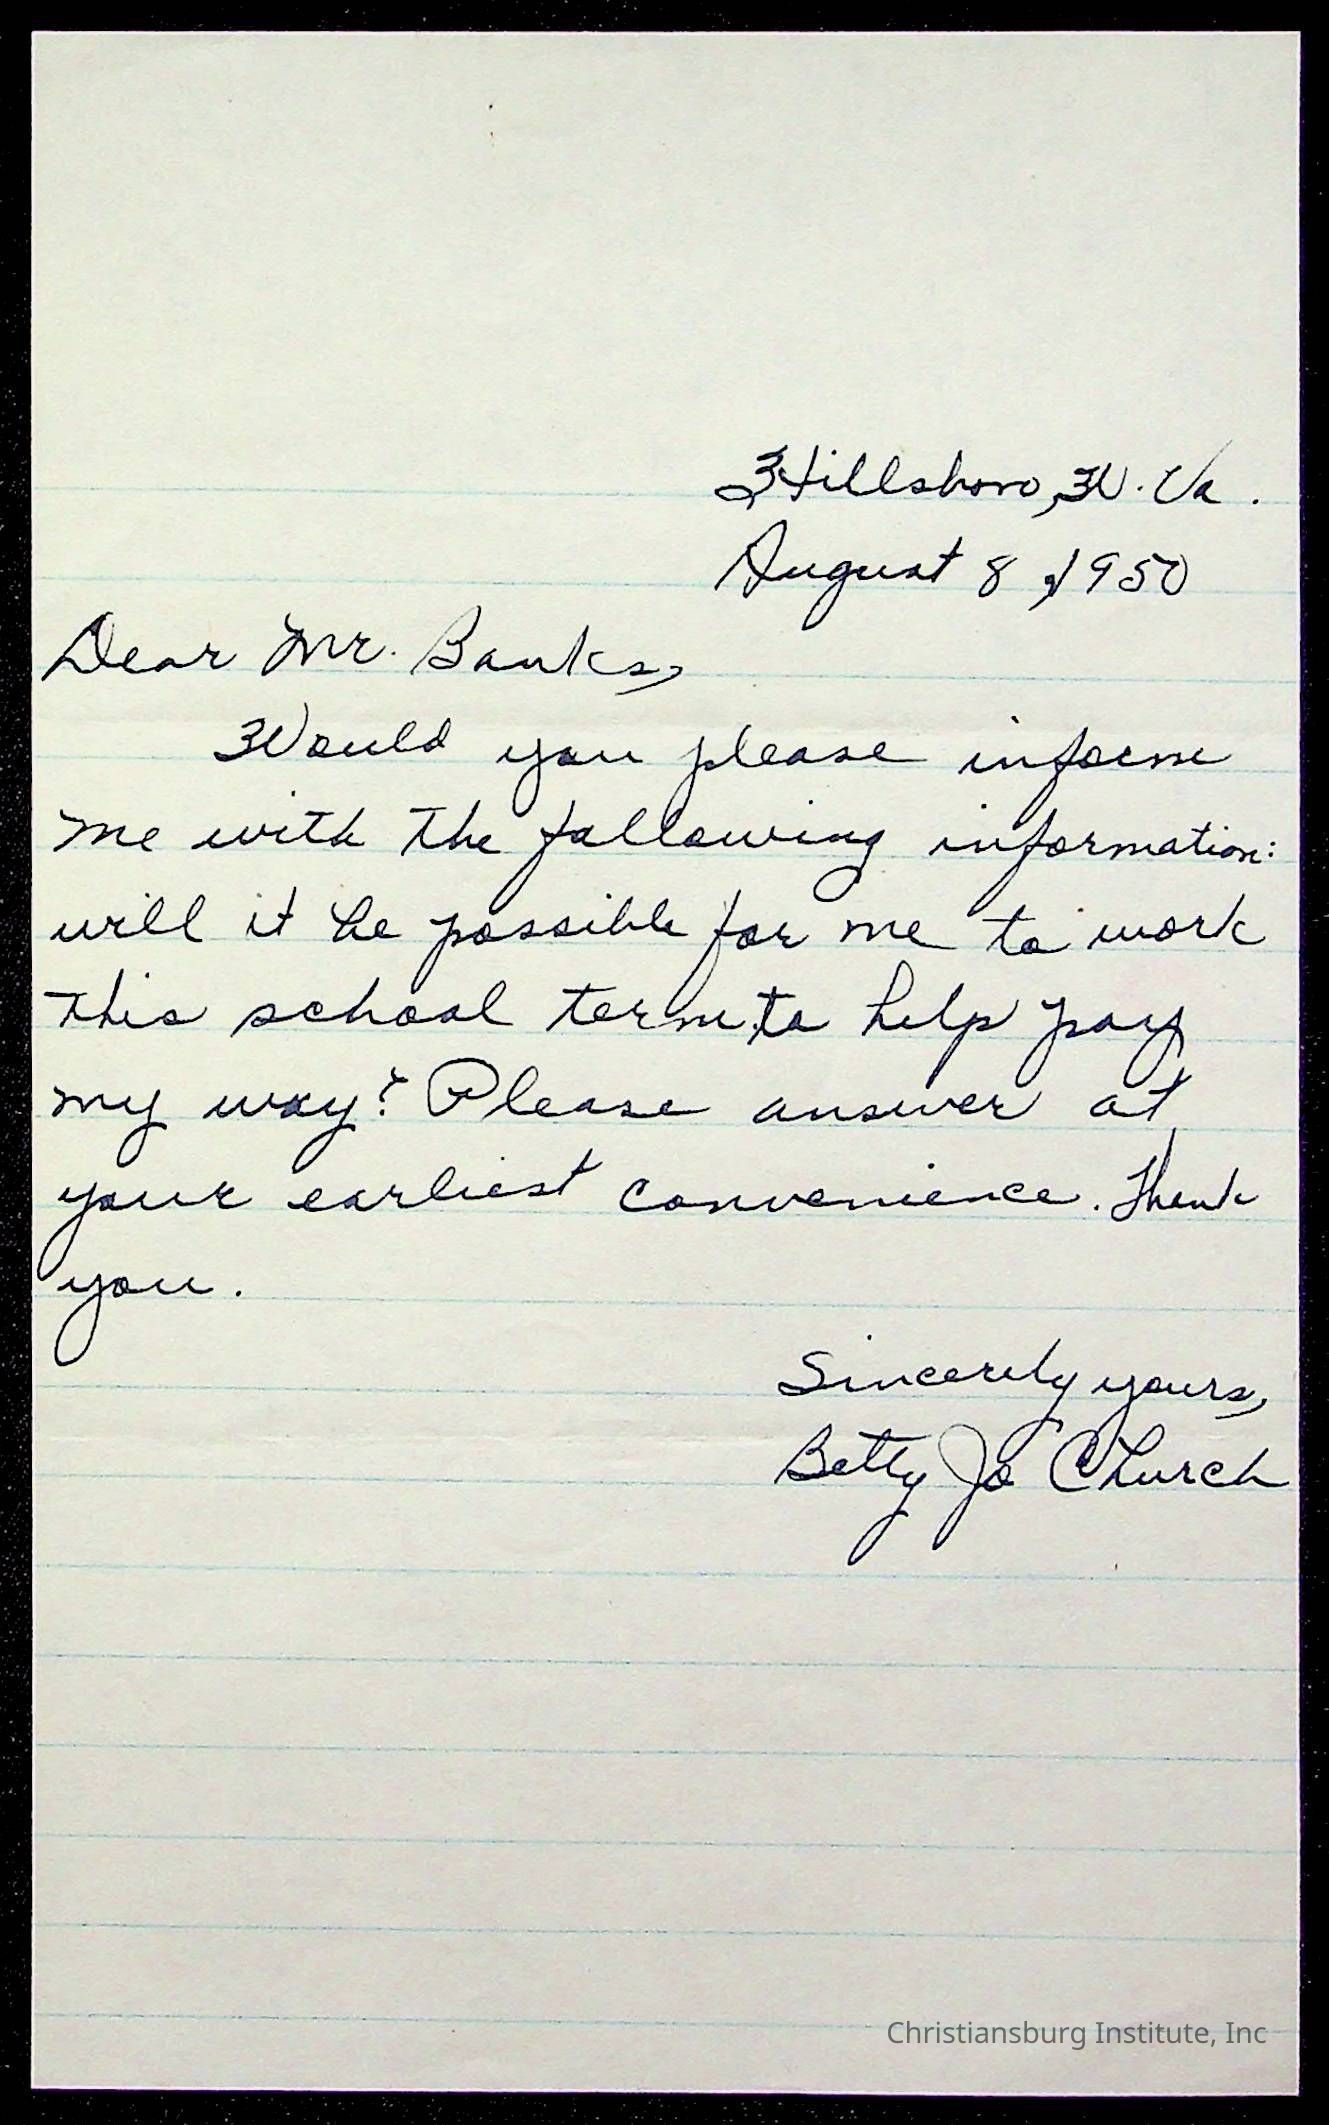 Hillsboro, W. Va.
August 8, 1950
Dear Mr. Banks,
Would you please inform
me with the following information:
will it be possible for me to work
this school term, to help pay
my way? Please answer at
your earliest convenience. Thank
you.
Sincerely yours,
Betty Jo Church
Christiansburg Institute, Inc